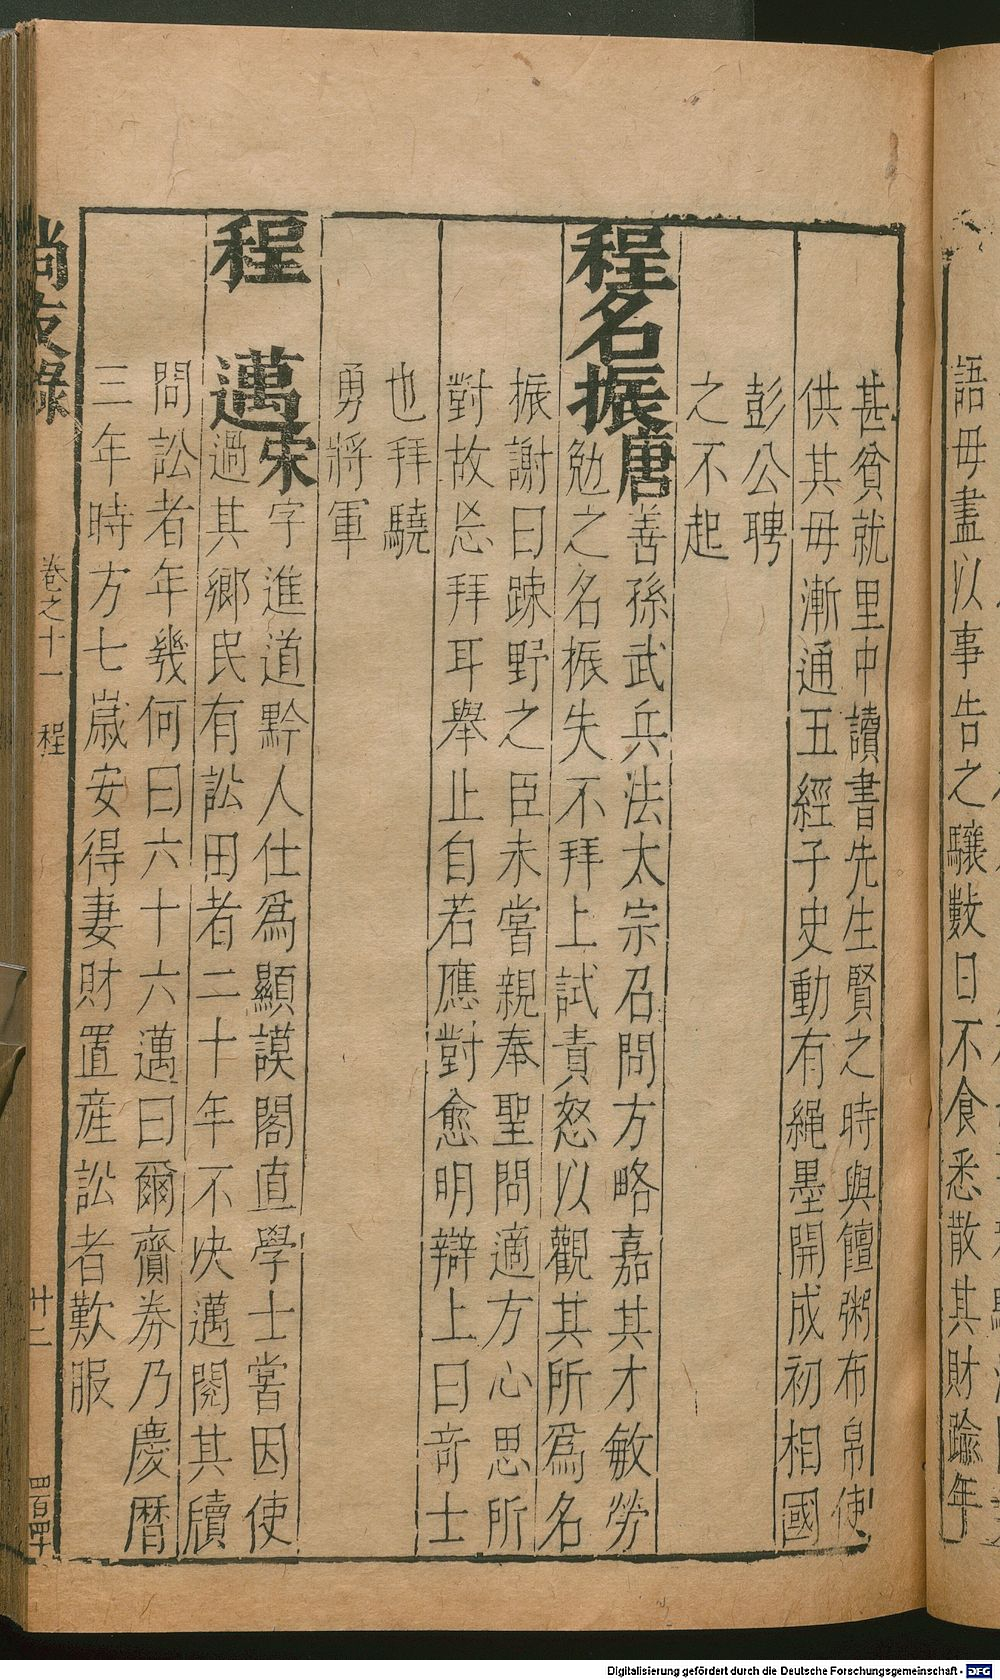 語毋盡以事告之驤數日不食悉散其財踰年
甚貧就里中讀書先生賢之時與饘粥布帛使
供其毋漸通五經子史動有繩墨開成初相國
彭公聘
之不起
程名振唐善孫武兵法太宗召問方略嘉其才敏勞
勉之名振失不拜上試責怒以觀其所爲名
振謝曰踈野之臣未嘗親奉聖問適方心思所
對故忘拜耳舉止自若應對愈明辯上曰奇士
也拜驍
勇將軍
程邁宋字進道黔人仕爲顯謨閣直學士嘗因使
過其鄉民有訟田者二十年不决邁閱其牘
問訟者年幾何曰六十六邁曰爾賫券乃慶曆
三年時方七歲安得妻財置産訟者歎服
尚友錄 卷之十一 程 廿二 四百四十
Digitalisierung gefördert durch die Deutsche Forschungsgemeinschaft - DFG